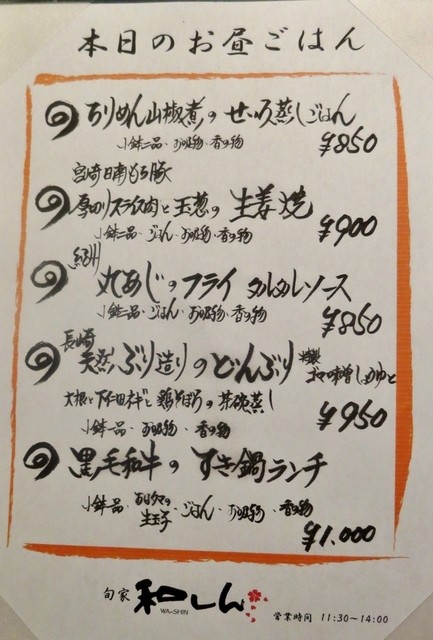 本日のお昼ごはん
ちりめん山椒煮のせいろ蒸しごはん
小鉢二品・お吸物・香の物
¥850
宮崎日南もち豚
厚切りスライス肉と玉葱の生姜焼
小鉢二品・ごはん・お吸物・香の物
¥900
紀州
丸あじのフライ タルタルソース
小鉢二品・ごはん・お吸物・香の物
¥850
長崎
天然ぶり造りのどんぶり 特製
ゴマ味噌しょうゆと
大根と下仁田ネギと鶏そぼろの茶碗蒸し
¥950
小鉢一品・お吸物・香の物
黒毛和牛のすき鍋ランチ
小鉢一品・
生玉子・ごはん・お吸物・香の物
¥1,000
旬家 和しん
WA-SHIN
営業時間 11:30〜14:00